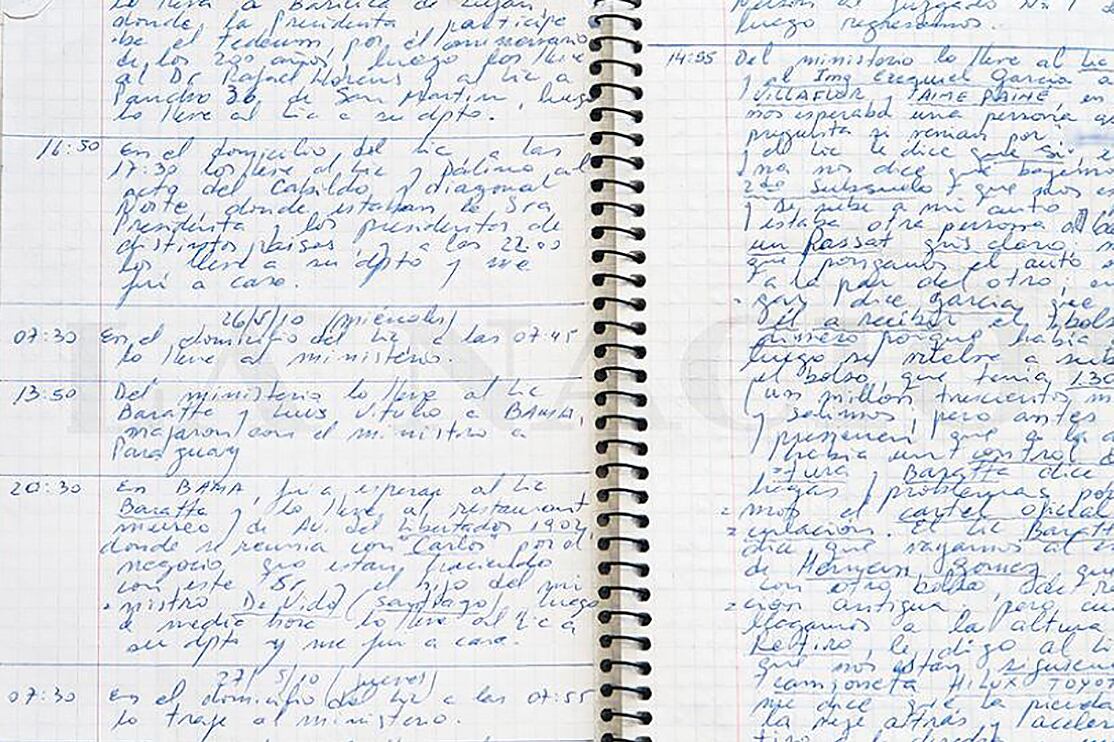 lo llevé a Basílica de Luján
donde la Presidenta participe
be el tedeum, por el aniversario
de los 200 años, luego los llevé
al Dr Rafael Llorens y al Lic a
Pancho 36, de San Martín, luego
lo llevé al Lic a su dpto.
16:50 En el domicilio del Lic a las
17:30 los llevé al Lic y Pálino al
acto del Cabildo y diagonal
Norte, donde estaban la Sra
Presidenta y los presidentes de
distintos países y a las 22:00
los llevé a su dpto y me
fui a casa.
26/5/10 (miércoles)
07:30 En el domicilio del Lic a las 07:45
lo llevé al ministerio.
13:50 Del ministerio lo llevé al Lic
Baratta y Luis Vitullo a BAMA,
viajaron con el ministro a
Paraguay
20:30 En BAMA, fui a esperar al Lic
Baratta y lo llevé al restaurant
museo, de Av. del Libertador 1902
donde se reunía con "Carlos" por el
negocio que están haciendo
con este Sr y el hijo del mi
nistro De Vido (Santiago), luego
de media hora lo llevé al Lic a
su dpto y me fui a casa.
27/5/10 (jueves)
07:30 En el domicilio del Lic a las 07:55
lo traje al ministerio.
luego regresamos.
14:55 Del ministerio lo llevé al Lic
y al Ing Ezequiel García a
VILLAFLOR y JAIME PAINÉ, en
nos esperaba una persona
pregunta si venían por
y el Lic le dice que Si, e
na nos dice que bajemos
2do Subsuelo y que nos es
y se sube a mi auto
estaba otra persona
un Passat gris claro;
que pongamos el auto
a la par del otro; en
gar y dice García que
él a recibir el bolso
dinero porque había
luego se vuelve a subir
el bolso, que tenía 1.30
(un millón trescientos m
y salimos, pero antes
presencia que a la
había un control de
tura y Baratta dice
hagas problemas por
mos el cartel oficial
culación. El Lic Bara
dice que vayamos al
de Hernán Gomez que
con otro bolso,
ción antigua. pero cu
llegamos a la altura
Retiro, le digo al Li
que nos están siguien
camioneta HILUX TOYOT
me dice que la pierda
la dejé atrás y aceler
LA NACION